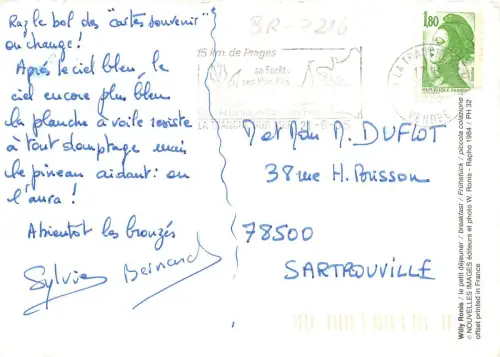 Raz le bol des "cartes souvenir"
on change!
Après le ciel bleu, le
ciel encore plus bleu
la planche à voile resiste
à tout domptage mais
le pineau aidant: on
l'aura!
A bientot les bronzés
Sylvie Bernard
BR-7216
15 km. de Plages
sa Forêt
ses Marais
LA TRANCHE
1,80
LA TRANCHE
VENDEE
M et Mme M. DUFLOT
38 rue H. Brisson
78500
SARTROUVILLE
Willy Ronis / le petit déjeuner / breakfast / Frühstück / piccola colazione
© NOUVELLES IMAGES éditeurs et photo W. Ronis - Rapho 1984 / PH 32
offset printed in France